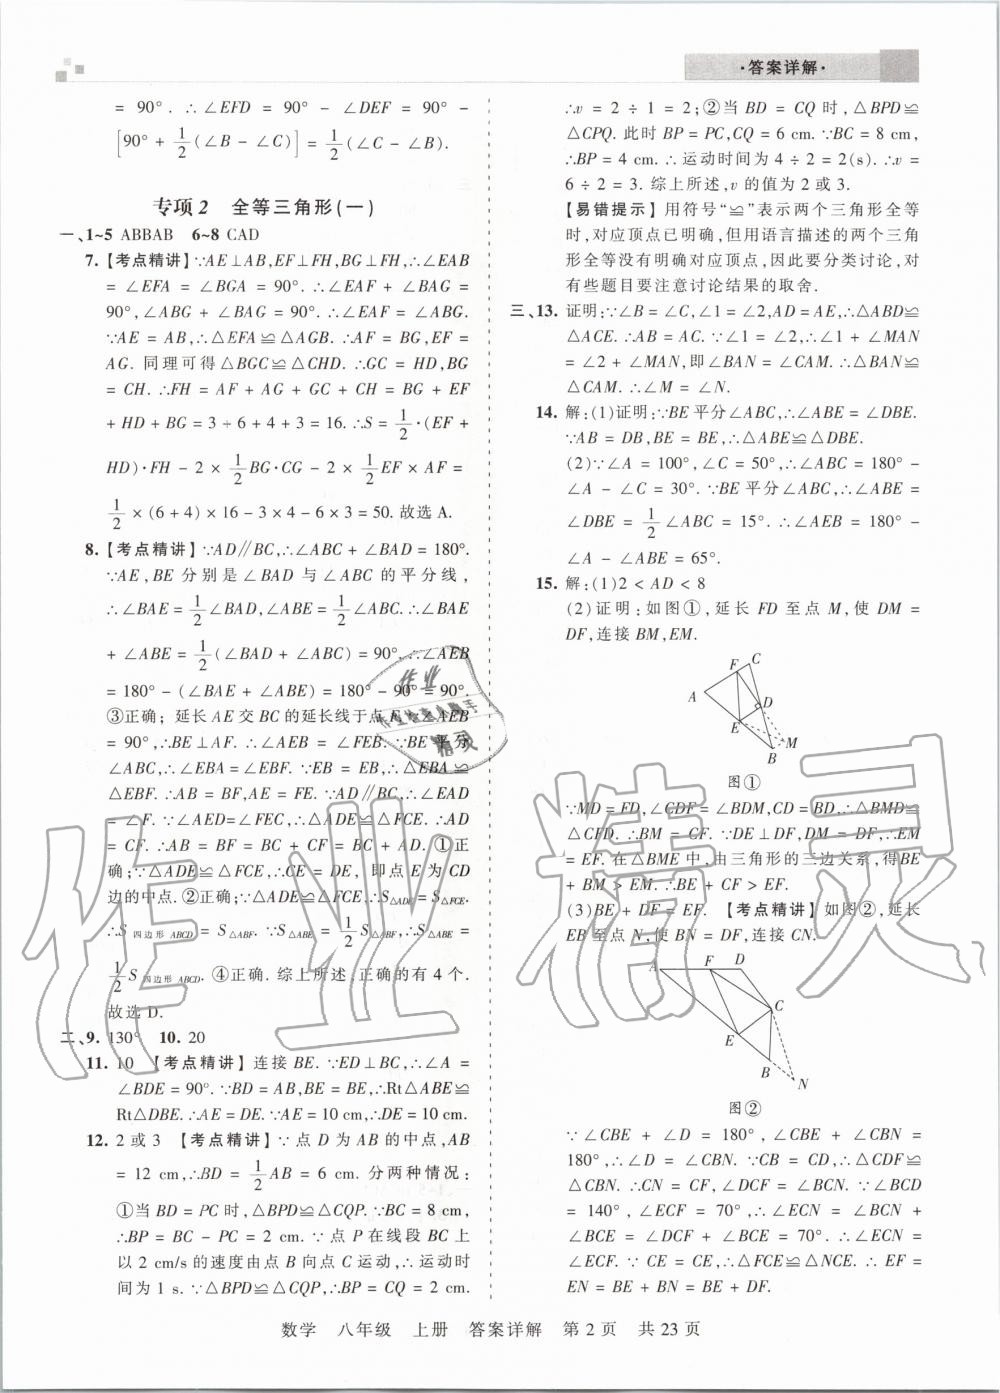 ·答案详解·
= 90°. ∴∠EFD = 90° - ∠DEF = 90° -
[90° + 1/2(∠B - ∠C)] = 1/2(∠B - ∠C).
专项2 全等三角形(一)
一、1~5 ABBAB 6~8 CAD
7.【考点精讲】∵AE⊥AB,EF⊥FH,BG⊥FH,∴∠EAB
= ∠EFA = ∠BGA = 90°. ∴∠EAF + ∠BAG =
90°,∠ABG + ∠BAG = 90°. ∴∠EAF = ∠ABG.
∵AE = AB,∴△EFA≌△AGB. ∴AF = BG,EF =
AG. 同理可得△BGC≌△CHD. ∴GC = HD,BG
= CH. ∴FH = AF + AG + GC + CH = BG + EF
+ HD + BG = 3 + 6 + 4 + 3 = 16. ∴S = 1/2·(EF +
HD)·FH - 2 × 1/2 BG·CG - 2 × 1/2 EF × AF =
1/2 × (6 + 4) × 16 - 3 × 4 - 6 × 3 = 50. 故选 A.
8.【考点精讲】∵AD∥BC,∴∠ABC + ∠BAD = 180°.
∵AE,BE 分别是∠BAD 与∠ABC 的平分线,
∴∠BAE = 1/2∠BAD,∠ABE = 1/2∠ABC. ∴∠BAE
+ ∠ABE = 1/2(∠BAD + ∠ABC) = 90°. ∴∠AEB
= 180° - (∠BAE + ∠ABE) = 180° - 90° = 90°.
③正确;延长 AE 交 BC 的延长线于点 F. ∵∠AEB
= 90°,∴BE⊥AF. ∴∠AEB = ∠FEB. ∵BE 平分
∠ABC,∴∠EBA = ∠EBF. ∵EB = EB,∴△EBA≌
△EBF. ∴AB = BF,AE = FE. ∵AD∥BC,∴∠EAD
= ∠F. ∵∠AED=∠FEC,∴△ADE≌△FCE. ∴AD
= CF. ∴AB = BF = BC + CF = BC + AD. ①正
确;∵△ADE≌△FCE,∴CE = DE, 即点 E 为 CD
边的中点. ②正确;∵△ADE≌△FCE. ∴S△ADE = S△FCE.
∴S四边形ABCD = S△ABF. ∵S△ABE = 1/2 S△ABF, ∴S△ABE =
1/2 S四边形ABCD. ④正确. 综上所述,正确的有 4 个.
故选 D.
二、9. 130° 10. 20
11. 10 【考点精讲】连接 BE. ∵ED⊥BC,∴∠A =
∠BDE = 90°. ∵BD = AB,BE = BE,∴Rt△ABE≌
Rt△DBE. ∴AE = DE. ∵AE = 10 cm,∴DE = 10 cm.
12. 2 或 3 【考点精讲】∵点 D 为 AB 的中点,AB
= 12 cm,∴BD = 1/2 AB = 6 cm. 分两种情况:
①当 BD = PC 时,△BPD≌△CQP. ∵BC = 8 cm,
∴BP = BC - PC = 2 cm. ∵点 P 在线段 BC 上
以 2 cm/s 的速度由点 B 向点 C 运动,∴运动时
间为 1 s. ∵△BPD≌△CQP,∴BP = CQ = 2 cm.
∴v = 2 ÷ 1 = 2;②当 BD = CQ 时,△BPD≌
△CPQ. 此时 BP = PC,CQ = 6 cm. ∵BC = 8 cm,
∴BP = 4 cm. ∴运动时间为 4 ÷ 2 = 2(s). ∴v =
6 ÷ 2 = 3. 综上所述,v 的值为 2 或 3.
【易错提示】用符号“≌”表示两个三角形全等
时,对应顶点已明确,但用语言描述的两个三角
形全等没有明确对应顶点,因此要分类讨论,对
有些题目要注意讨论结果的取舍.
三、13. 证明:∵∠B = ∠C,∠1 = ∠2,AD = AE,∴△ABD≌
△ACE. ∴AB = AC. ∵∠1 = ∠2,∴∠1 + ∠MAN
= ∠2 + ∠MAN,即∠BAN = ∠CAM. ∴△BAN≌
△CAM. ∴∠M = ∠N.
14. 解:(1)证明:∵BE 平分∠ABC,∴∠ABE = ∠DBE.
∵AB = DB,BE = BE,∴△ABE≌△DBE.
(2)∵∠A = 100°,∠C = 50°,∴∠ABC = 180° -
∠A - ∠C = 30°. ∵BE 平分∠ABC,∴∠ABE =
∠DBE = 1/2∠ABC = 15°. ∴∠AEB = 180° -
∠A - ∠ABE = 65°.
15. 解:(1)2 < AD < 8
(2)证明:如图①,延长 FD 至点 M,使 DM =
DF,连接 BM,EM.
F C
A D
E M
B
图①
∵MD = FD,∠CDF = ∠BDM,CD = BD,∴△BMD≌
△CFD. ∴BM = CF. ∵DE⊥DF,DM = DF,∴EM
= EF. 在△BME 中,由三角形的三边关系,得BE
+ BM > EM. ∴BE + CF > EF.
(3)BE + DF = EF. 【考点精讲】如图②,延长
EB 至点 N,使 BN = DF,连接 CN.
A F D
C
E
B N
图②
∵∠CBE + ∠D = 180°,∠CBE + ∠CBN =
180°,∴∠D = ∠CBN. ∵CB = CD,∴△CDF≌
△CBN. ∴CN = CF,∠DCF = ∠BCN. ∵∠BCD
= 140°,∠ECF = 70°,∴∠ECN = ∠BCN +
∠BCE = ∠DCF + ∠BCE = 70°. ∴∠ECN =
∠ECF. ∵CE = CE,∴△FCE≌△NCE. ∴EF =
EN = BE + BN = BE + DF.
数学 八年级 上册 答案详解 第 2 页 共 23 页
作业精灵